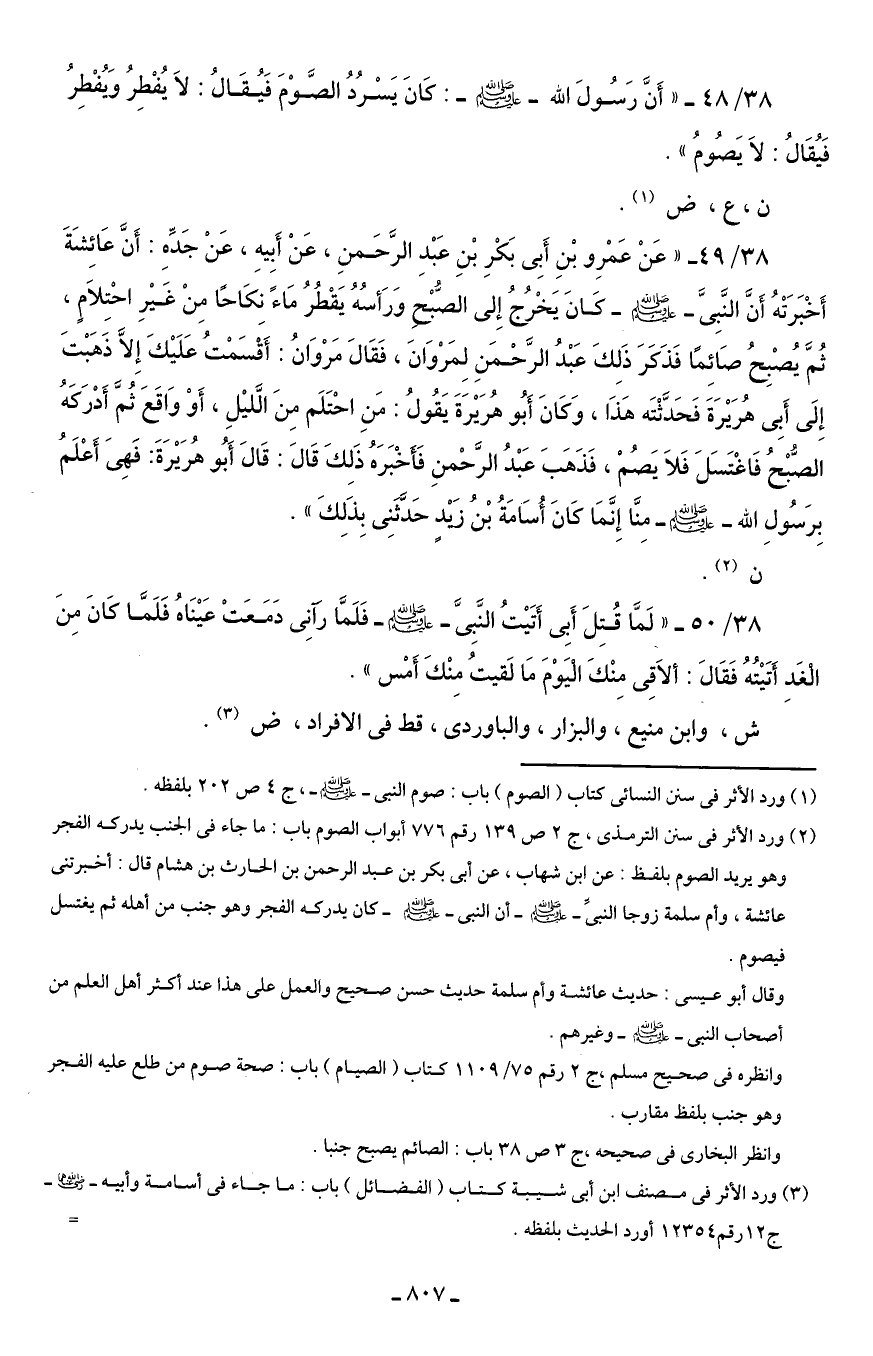 ٣٨/ ٤٨ ـ « أَنَّ رَسُولَ الله ـ ﷺ ـ : كَانَ يَسْرُدُ الصَّوْمَ فَيُقَالُ : لاَ يُفْطِرُ وَيُفْطِرُ
فَيُقَالُ : لاَ يَصُومُ » .
ن ، ع ، ض (١) .
٣٨/ ٤٩ـ « عَنْ عَمْرِو بْنِ أَبِى بَكْرِ بْنِ عَبْدِ الرَّحَمنِ ، عَنْ أَبِيهِ ، عَنْ جَدِّهِ : أَنَّ عَائِشَةَ
أَخْبَرَتْهُ أَنَّ النَّبِىَّ ـ ﷺ ـ كَانَ يَخْرُجُ إِلى الصُّبْحِ وَرَأسُهُ يَقْطُرُ مَاءً نِكَاحًا مِنْ غَيْرِ احْتِلاَمٍ ،
ثُمَّ يُصْبِحُ صَائِمًا فَذَكَرَ ذَلِكَ عَبْدُ الرَّحْمَنِ لِمَرْوَانَ ، فَقَالَ مَرْوَانُ : أَقْسَمْتُ عَلَيْكَ إِلاَّ ذَهَبْتَ
إِلَى أَبِى هُرَيْرَةَ فَحَدَّثْتَه هَذَا ، وَكَانَ أَبُو هُرَيْرَةَ يَقُولُ : مَنِ احْتَلَم مِنَ الَّليْلِ ، أَوْ وَاقَعَ ثُمَّ أَدْرَكَهُ
الصُّبْحُ فَاغْتَسَلَ فَلاَ يَصُمْ ، فَذَهَبَ عَبْدُ الرَّحْمنِ فَأَخْبَرَهُ ذَلِكَ قَالَ : قَالَ أَبُو هُرَيْرَةَ: فَهِىَ أَعْلَمُ
بِرَسُولِ الله ـ ﷺ ـ مِنَّا إِنَّمَا كَانَ أُسَامَةُ بْنُ زَيْدٍ حَدَّثَنِى بِذَلِكَ » .
ن (٢) .
٣٨/ ٥٠ ـ « لَمَّا قُتِلَ أَبِى أَتَيْتُ النَّبِىَّ ـ ﷺ ـ فَلَمَّا رَآنِى دَمَعَتْ عَيْنَاهُ فَلَمَّا كَانَ مِنَ
الْغَدِ أَتَيْتُهُ فَقَالَ : أُلاَقِى مِنْكَ الْيَوْمَ مَا لَقِيتُ مِنْكَ أَمْسِ » .
ش ، وابن منيع ، والبزار ، والباوردى ، قط فى الافراد ، ض (٣) .
(١) ورد الأثر فى سنن النسائى كتاب ( الصوم ) باب : صوم النبى ـ ﷺ ـ ، ج ٤ ص ٢٠٢ بلفظه .
(٢) ورد الأثر فى سنن الترمذى ، ج ٢ ص ١٣٩ رقم ٧٧٦ أبواب الصوم باب : ما جاء فى الجنب يدركه الفجر
وهو يريد الصوم بلفظ : عن ابن شهاب ، عن أبى بكر بن عبد الرحمن بن الحارث بن هشام قال : أخبرتنى
عائشة ، وأم سلمة زوجا النبىِّ ـ ﷺ ـ أن النبى ـ ﷺ ـ كان يدركه الفجر وهو جنب من أهله ثم يغتسل
فيصوم .
وقال أبو عيسى : حديث عائشة وأم سلمة حديث حسن صحيح والعمل على هذا عند أكثر أهل العلم من
أصحاب النبى ـ ﷺ ـ وغيرهم .
وانظره فى صحيح مسلم ،ج ٢ رقم ٧٥/ ١١٠٩ كتاب ( الصيام ) باب : صحة صوم من طلع عليه الفجر
وهو جنب بلفظ مقارب .
وانظر البخارى فى صحيحه ،ج ٣ ص ٣٨ باب : الصائم يصبح جنبا .
(٣) ورد الأثر فى مصنف ابن أبى شيبة كتاب ( الفضائل ) باب : ما جاء فى أسامة وأبيه ـ رضي الله عنهما ـ
ج١٢رقم١٢٣٥٤ أورد الحديث بلفظه .
=
ـ ٨٠٧ ـ